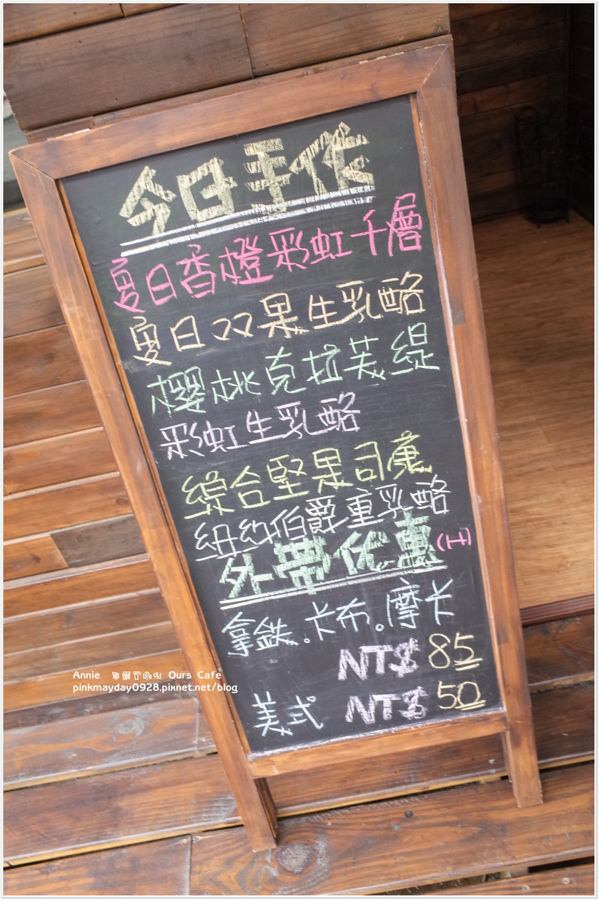 今日手作
夏日香橙彩虹千層
夏日ㄡㄡ果生乳酪
櫻桃克拉芙緹
彩虹生乳酪
綜合堅果司康
紐約伯爵重乳酪
外帶优惠(H)
拿鉄.卡布。摩卡
NT$ 85
美式 NT$ 50
Annie Ours Cafe
pinkmayday0928.pixnet.net/blog